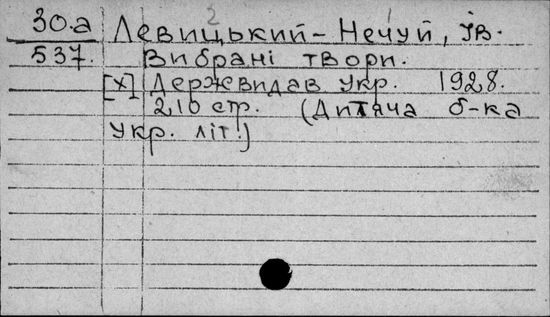 2
30.а Левицький-Нечуй, Ів.
537. Вибрані твори.
[X] Держвидав Укр. 1928.
210 стр. (Дитяча б-ка
Укр. літ.)